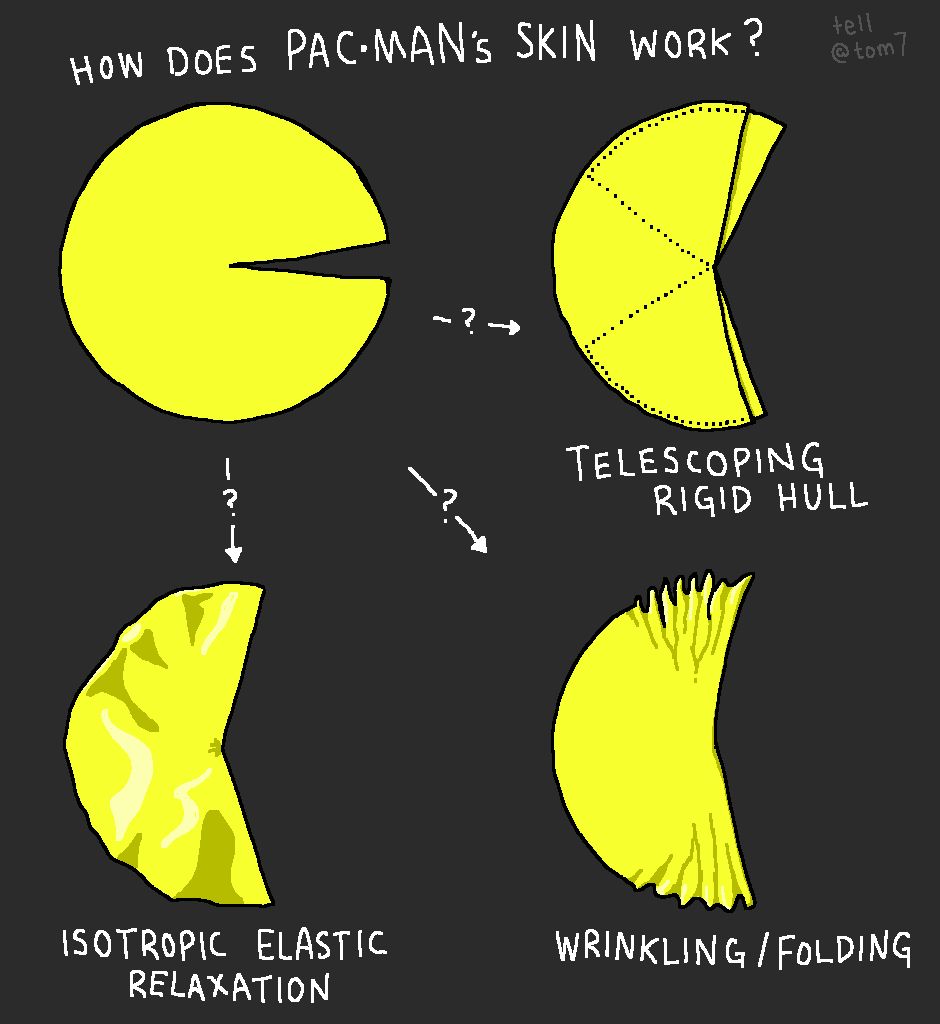 HOW DOES PAC·MAN's SKIN WORK?
tell
@tom7
- ? →
TELESCOPING
RIGID HULL
?
?
ISOTROPIC ELASTIC
RELAXATION
WRINKLING/FOLDING